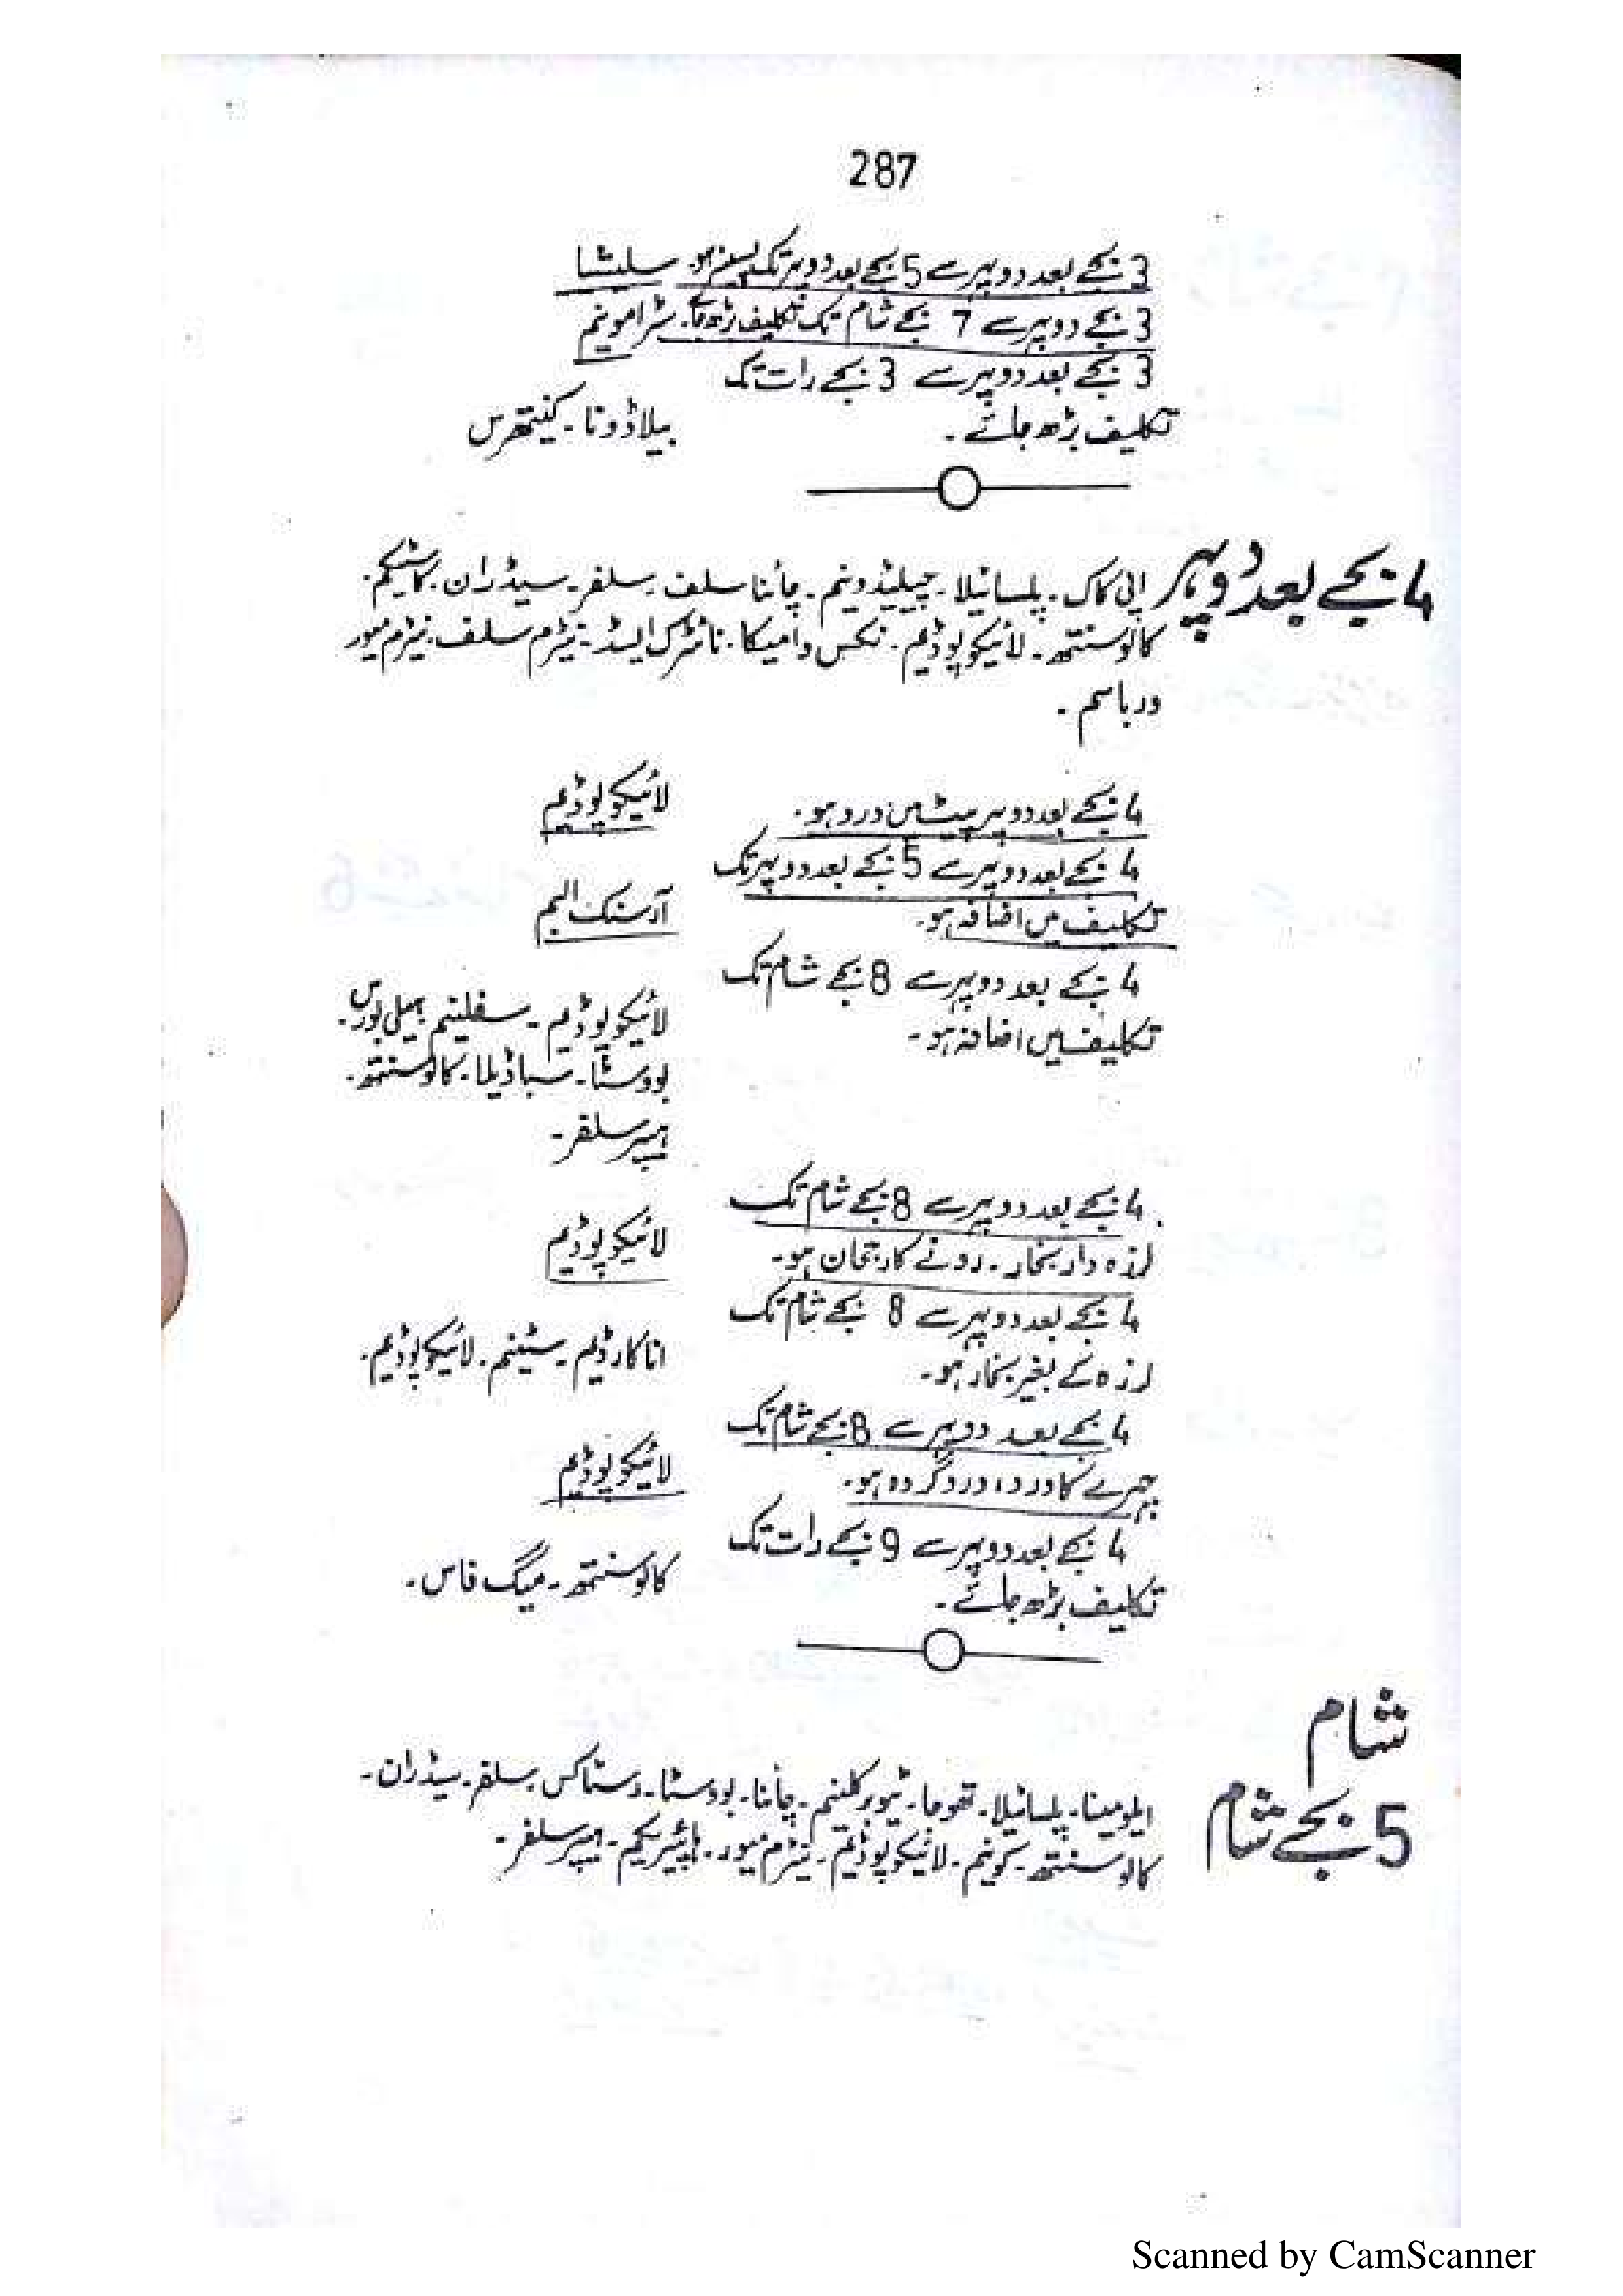 287
3 بجے بعد دوپہر سے 5 بجے بعد دوپہر تک پسینہ ہو۔ سلیشیا
3 بجے دوپہر سے 7 بجے شام تک تکلیف بڑھ جائے۔ سٹرامونیم
3 بجے بعد دوپہر سے 3 بجے رات تک
تکلیف بڑھ جائے۔ بیلاڈونا۔ کینتھرس
4 بجے بعد دوپہر اپی کاک۔ پلساٹیلا۔ چیلیڈونیم۔ چائنا سلف۔ سلفر۔ سیڈران۔ کاسٹیکم۔
کالوسنتھ۔ لائیکوپوڈیم۔ نکس وامیکا۔ نائٹرک ایسڈ۔ نیٹرم سلف۔ نیٹرم میور
ورباسم۔
4 بجے بعد دوپہر پیٹ میں درد ہو۔ لائیکوپوڈیم
4 بجے بعد دوپہر سے 5 بجے بعد دوپہر تک
تکلیف میں اضافہ ہو۔ آرسنک البم
4 بجے بعد دوپہر سے 8 بجے شام تک
تکلیف میں اضافہ ہو۔ لائیکوپوڈیم۔ سفلینم۔ ہیلی بورس۔
بووسٹا۔ سباڈیلا۔ کالوسنتھ۔
ہیپر سلفر۔
4 بجے بعد دوپہر سے 8 بجے شام تک
لرزہ دار بخار۔ رونے کا رجحان ہو۔ لائیکوپوڈیم
4 بجے بعد دوپہر سے 8 بجے شام تک
لرزہ کے بغیر بخار ہو۔ اناکارڈیم۔ سٹینم۔ لائیکوپوڈیم۔
4 بجے بعد دوپہر سے 8 بجے شام تک
چہرے کا درد، درد گردہ ہو۔ لائیکوپوڈیم
4 بجے بعد دوپہر سے 9 بجے رات تک
تکلیف بڑھ جائے۔ کالوسنتھ۔ میگ فاس۔
شام
5 بجے شام ایلومینا۔ پلساٹیلا۔ تھوجا۔ ٹیوبرکلینم۔ چائنا۔ بووسٹا۔ رسٹاکس۔ سلفر۔ سیڈران۔
کالوسنتھ۔ کونیم۔ لائیکوپوڈیم۔ نیٹرم میور۔ ہائپیریکم۔ ہیپر سلفر۔
Scanned by CamScanner